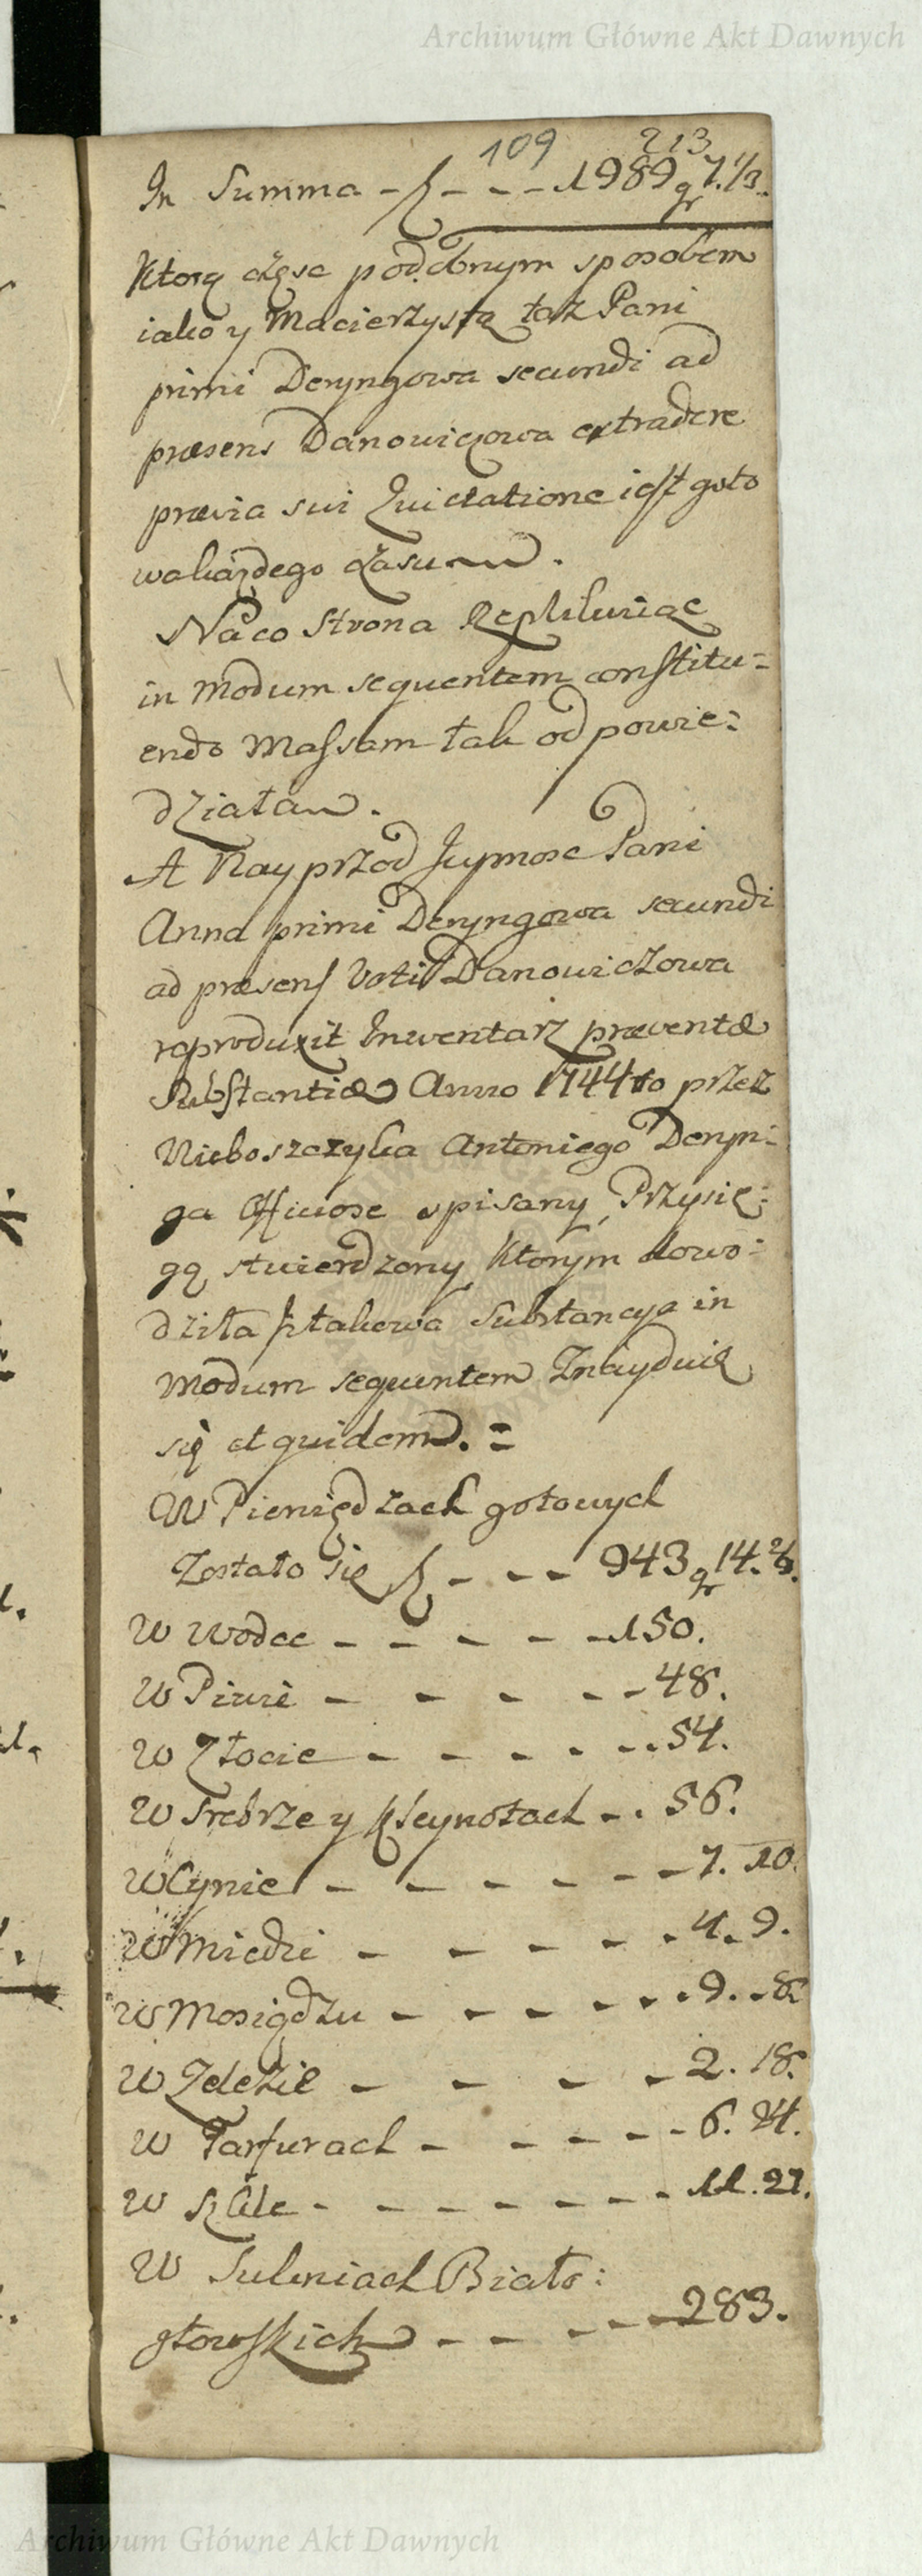 Archiwum Główne Akt Dawnych
109 213
In Summa - f - - - 1989 gr 7. 1/3.
Ktorą częsc podobnym sposobem
iako y Macierzystą taż Pani
primi Deryngowa secundi ad
præsens Danowiczowa extradere
prævia sui Quietatione iest goto
wa każdego czasu.
Na co Strona Replikuiąc
in Modum sequentem constitu=
endo Massam tak od powie=
działa.
A Nayprzod Jeymosc Pani
Anna primi Deryngowa secundi
ad præsens Voti Danowiczowa
reproduxit Inwentarz præventæ
Substantiæ Anno 1744to przez
Nieboszczyka Antoniego Deryn=
ga Officiose spisany, Przysię=
gą stwierdzony, Ktorym dowo=
dziła iż takowa Substancya in
Modum sequentem Znayduie
się et quidem. =
W Pieniędzach gotowych
Zostało się f - - - 943 gr 14.
W Wodce - - - - - 150.
W Piwie - - - - - 48.
W Złocie - - - - - 54.
W Srebrze y Kleynotach - . 56.
W Cynie - - - - - - - 7. 10.
W Miedzi - - - - - - 4. 9.
W Mosiądzu - - - - - - 9. - 8.
W Zelezie - - - - 2. 18.
W Farfurach - - - - - 6. 24.
W Szkle - - - - - - - 11. 27.
W Sukniach Biało=
głowskich - - - - - 283.
Archiwum Główne Akt Dawnych